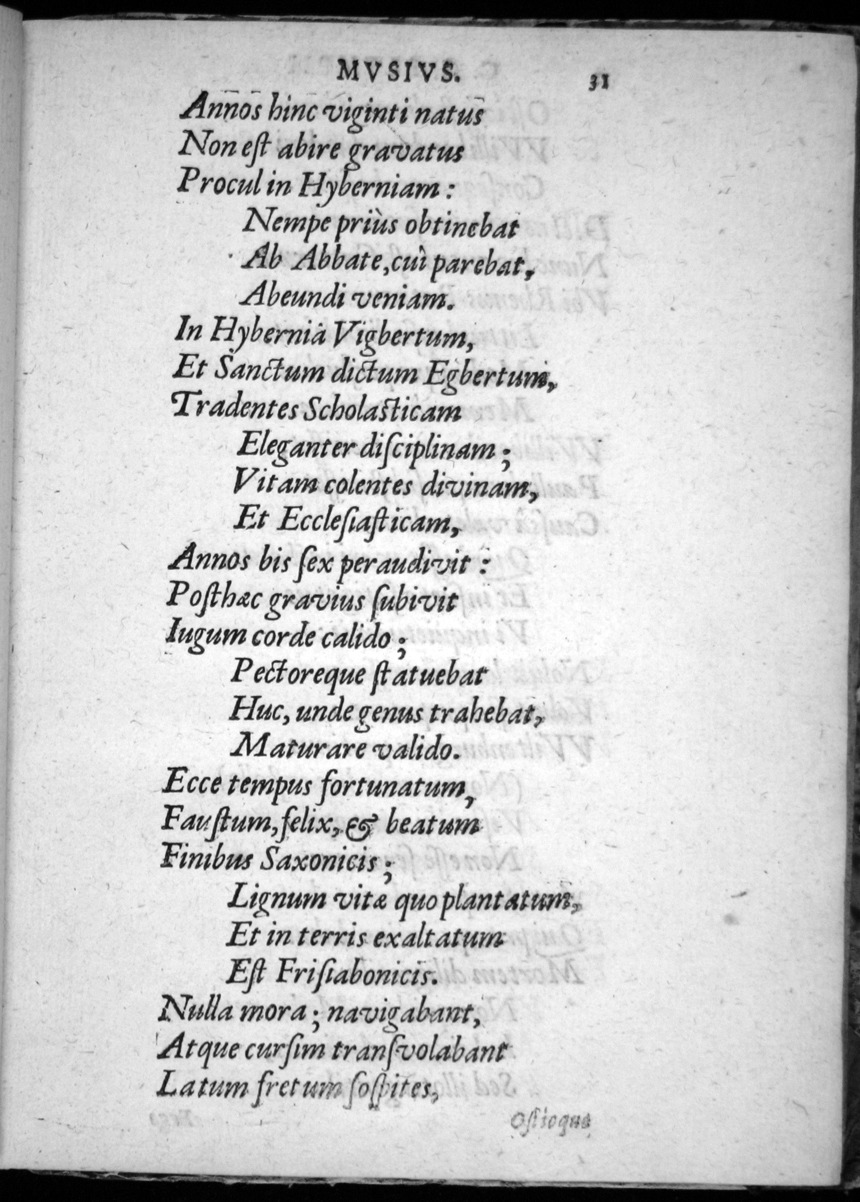 MVSIVS. 31
Annos hinc viginti natus
Non est abire gravatus
Procul in Hyberniam :
Nempe priùs obtinebat
Ab Abbate, cuì parebat,
Abeundi veniam.
In Hyberniâ Vigbertum,
Et Sanctum dictum Egbertum,
Tradentes Scholasticam
Eleganter diſciplinam ;
Vitam colentes divinam,
Et Eccleſiaſticam,
Annos bis ſex peraudivit :
Poſthæc gravius ſubivit
Iugum corde calido ;
Pectoreque ſtatuebat
Huc, unde genus trahebat,
Maturare valido.
Ecce tempus fortunatum,
Fauſtum, felix, & beatum
Finibus Saxonicis ;
Lignum vitæ quo plantatum,
Et in terris exaltatum
Eſt Friſiabonicis.
Nulla mora ; navigabant,
Atque curſim tranſvolabant
Latum fretum ſoſpites,
Oſtioque